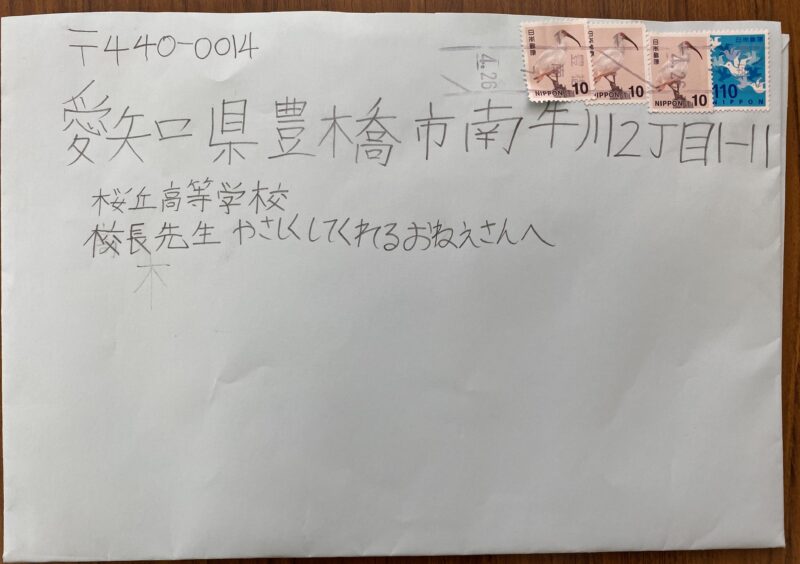 〒440-0014
愛知県豊橋市南牛川2丁目1-11
桜丘高等学校
校長先生 やさしくしてくれてるおねえさんへ
木
日本郵便
10
NIPPON
日本郵便
10
NIPPON
日本郵便
10
NIPPON
日本郵便
110
NIPPON
4.26